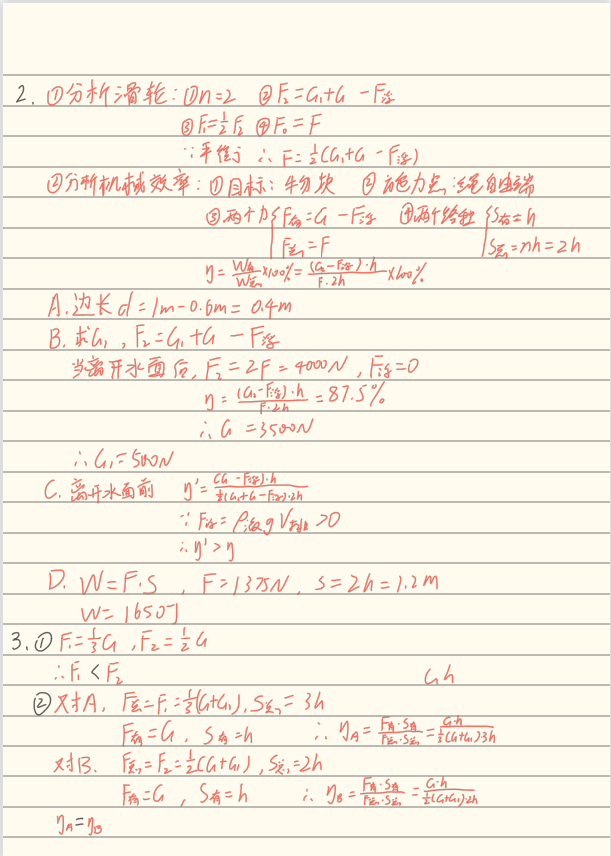 2. ①分析滑轮：①n=2 ②F₂=G₁+G-F浮
③F₁=½F₂ ④F₀=F
∵平衡 ∴F=½(G₁+G-F浮)
②分析机械效率：①目标：物块 ②动力点：绳自由端
③两个力{F有=G-F浮 ④两个路程{S有=h
F总=F S总=nh=2h
η=W有/W总×100%=(G-F浮)·h/F·2h×100%
A.边长d=1m-0.6m=0.4m
B.求G₁，F₂=G₁+G-F浮
当离开水面后，F₂=2F=4000N，F浮=0
η=(G-F浮)·h/F·2h=87.5%
∴G=3500N
∴G₁=500N
C.离开水面前 η'=(G-F浮)·h/½(G₁+G-F浮)·2h
∵F浮=ρ液gV排>0
∴η'>η
D. W=F·S，F=1375N，S=2h=1.2m
W=1650J
3.①F₁=⅓G，F₂=½G
∴F₁<F₂ Gh
②对A，F总=F₁=⅓(G+G₁)，S总=3h
F有=G，S有=h ∴ηA=F有·S有/F总·S总=G·h/⅓(G+G₁)·3h
对B. F总=F₂=½(G+G₁)，S总=2h
F有=G，S有=h ∴ηB=F有·S有/F总·S总=G·h/½(G+G₁)·2h
ηA=ηB